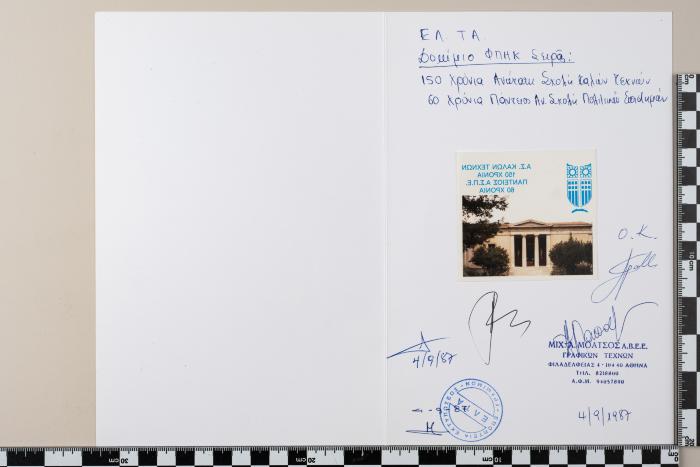 ΕΛ. ΤΑ.
Δοκίμιο ΦΠΗΚ Σειρᾶς:
150 Χρόνια Ανώτατη Σχολή Καλών Τεχνών
60 Χρόνια Πάντειος Αν. Σχολή Πολιτικών Επιστημών
Α.Σ. ΚΑΛΩΝ ΤΕΧΝΩΝ
150 ΧΡΟΝΙΑ
ΠΑΝΤΕΙΟΣ Α.Σ.Π.Ε.
60 ΧΡΟΝΙΑ
Ο.Κ.
4/9/87
ΜΙΧ. Α. ΜΟΑΤΣΟΣ Α.Β.Ε.Ε.
ΓΡΑΦΙΚΩΝ ΤΕΧΝΩΝ
ΦΙΛΑΔΕΛΦΕΙΑΣ 4 - 104 40 ΑΘΗΝΑ
ΤΗΛ. 8218800
Α.Φ.Μ. 94057890
4/9/1987
ΕΛΤΑ
-9-87
30 cm
20
10
0 cm
10 cm
0 cm